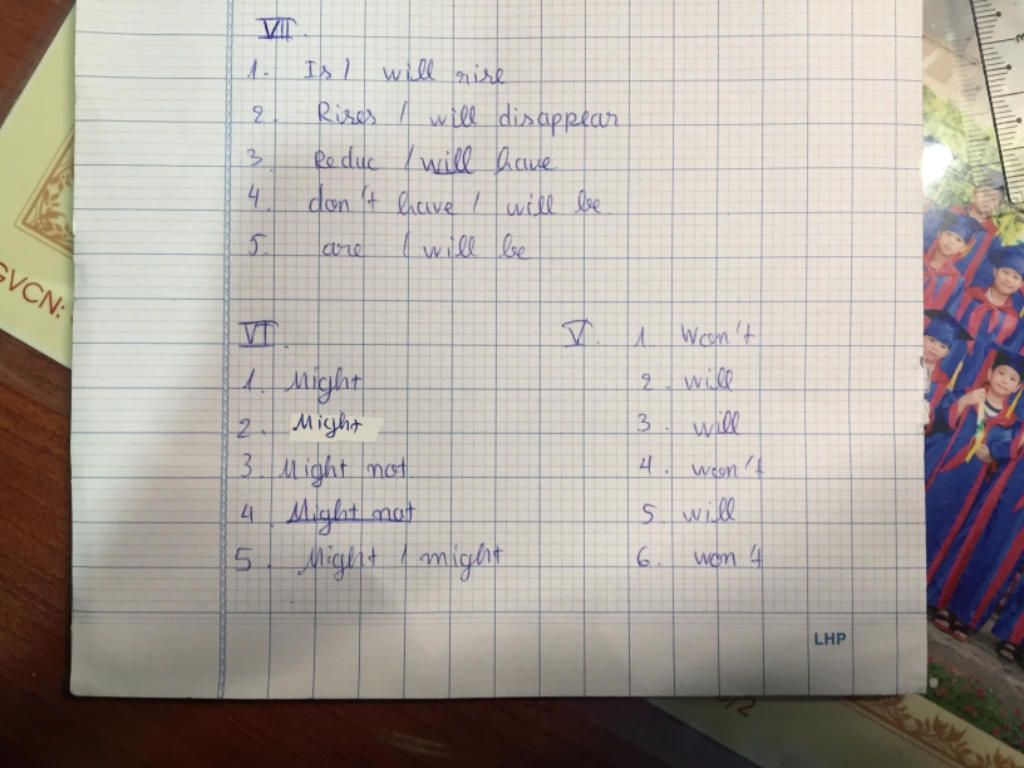 VII.
1. Is / will rise
2. Rises / will disappear
3. Reduc / will have
4. don't have / will be
5. are / will be
GVCN:
VI.
1. Might
2. Might
3. Might not
4 Might not
5. Might / might
V. 1. Won't
2. will
3. will
4. won't
5 will
6. won't
LHP